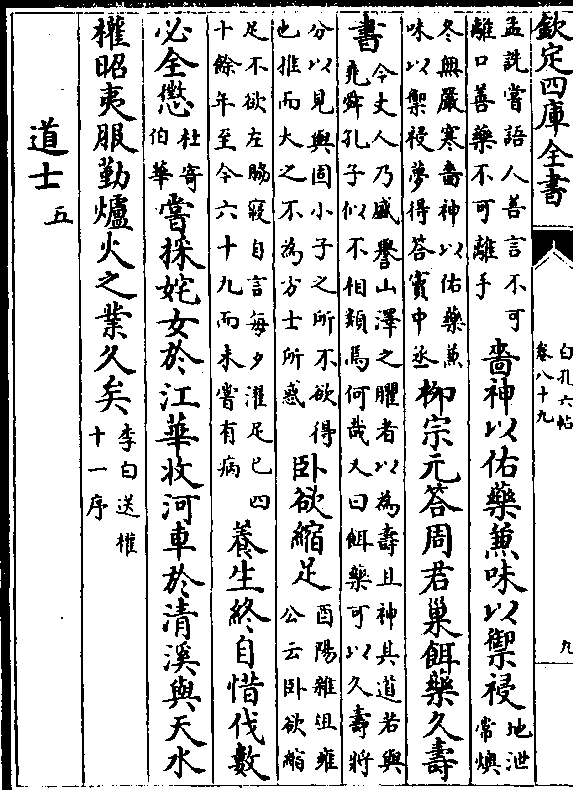 欽定四庫全書
白孔六帖
卷八十九
九
孟詵嘗語人善言不可
離口善藥不可離手
嗇神以佑藥兼味以禦祲
地泄
常燠
冬無嚴寒嗇神以佑藥兼
味以禦祲夢得答竇中丞
柳宗元答周君巢餌藥久壽
書
今丈人乃盛譽山澤之臞者以為壽且神其道若與
堯舜孔子似不相類焉何哉又曰餌藥可以久壽將
分以見與固小子之所不欲得
也推而大之不為方士所惑
卧欲縮足
酉陽雜俎雍
公云卧欲縮
足不欲左脇寢自言每夕濯足已四
十餘年至今六十九而未嘗有病
養生終自惜伐數
必全懲
杜寄
伯華
嘗採姹女於江華收河車於清溪與天水
權昭夷服勤爐火之業久矣
李白送權
十一序
道士
五